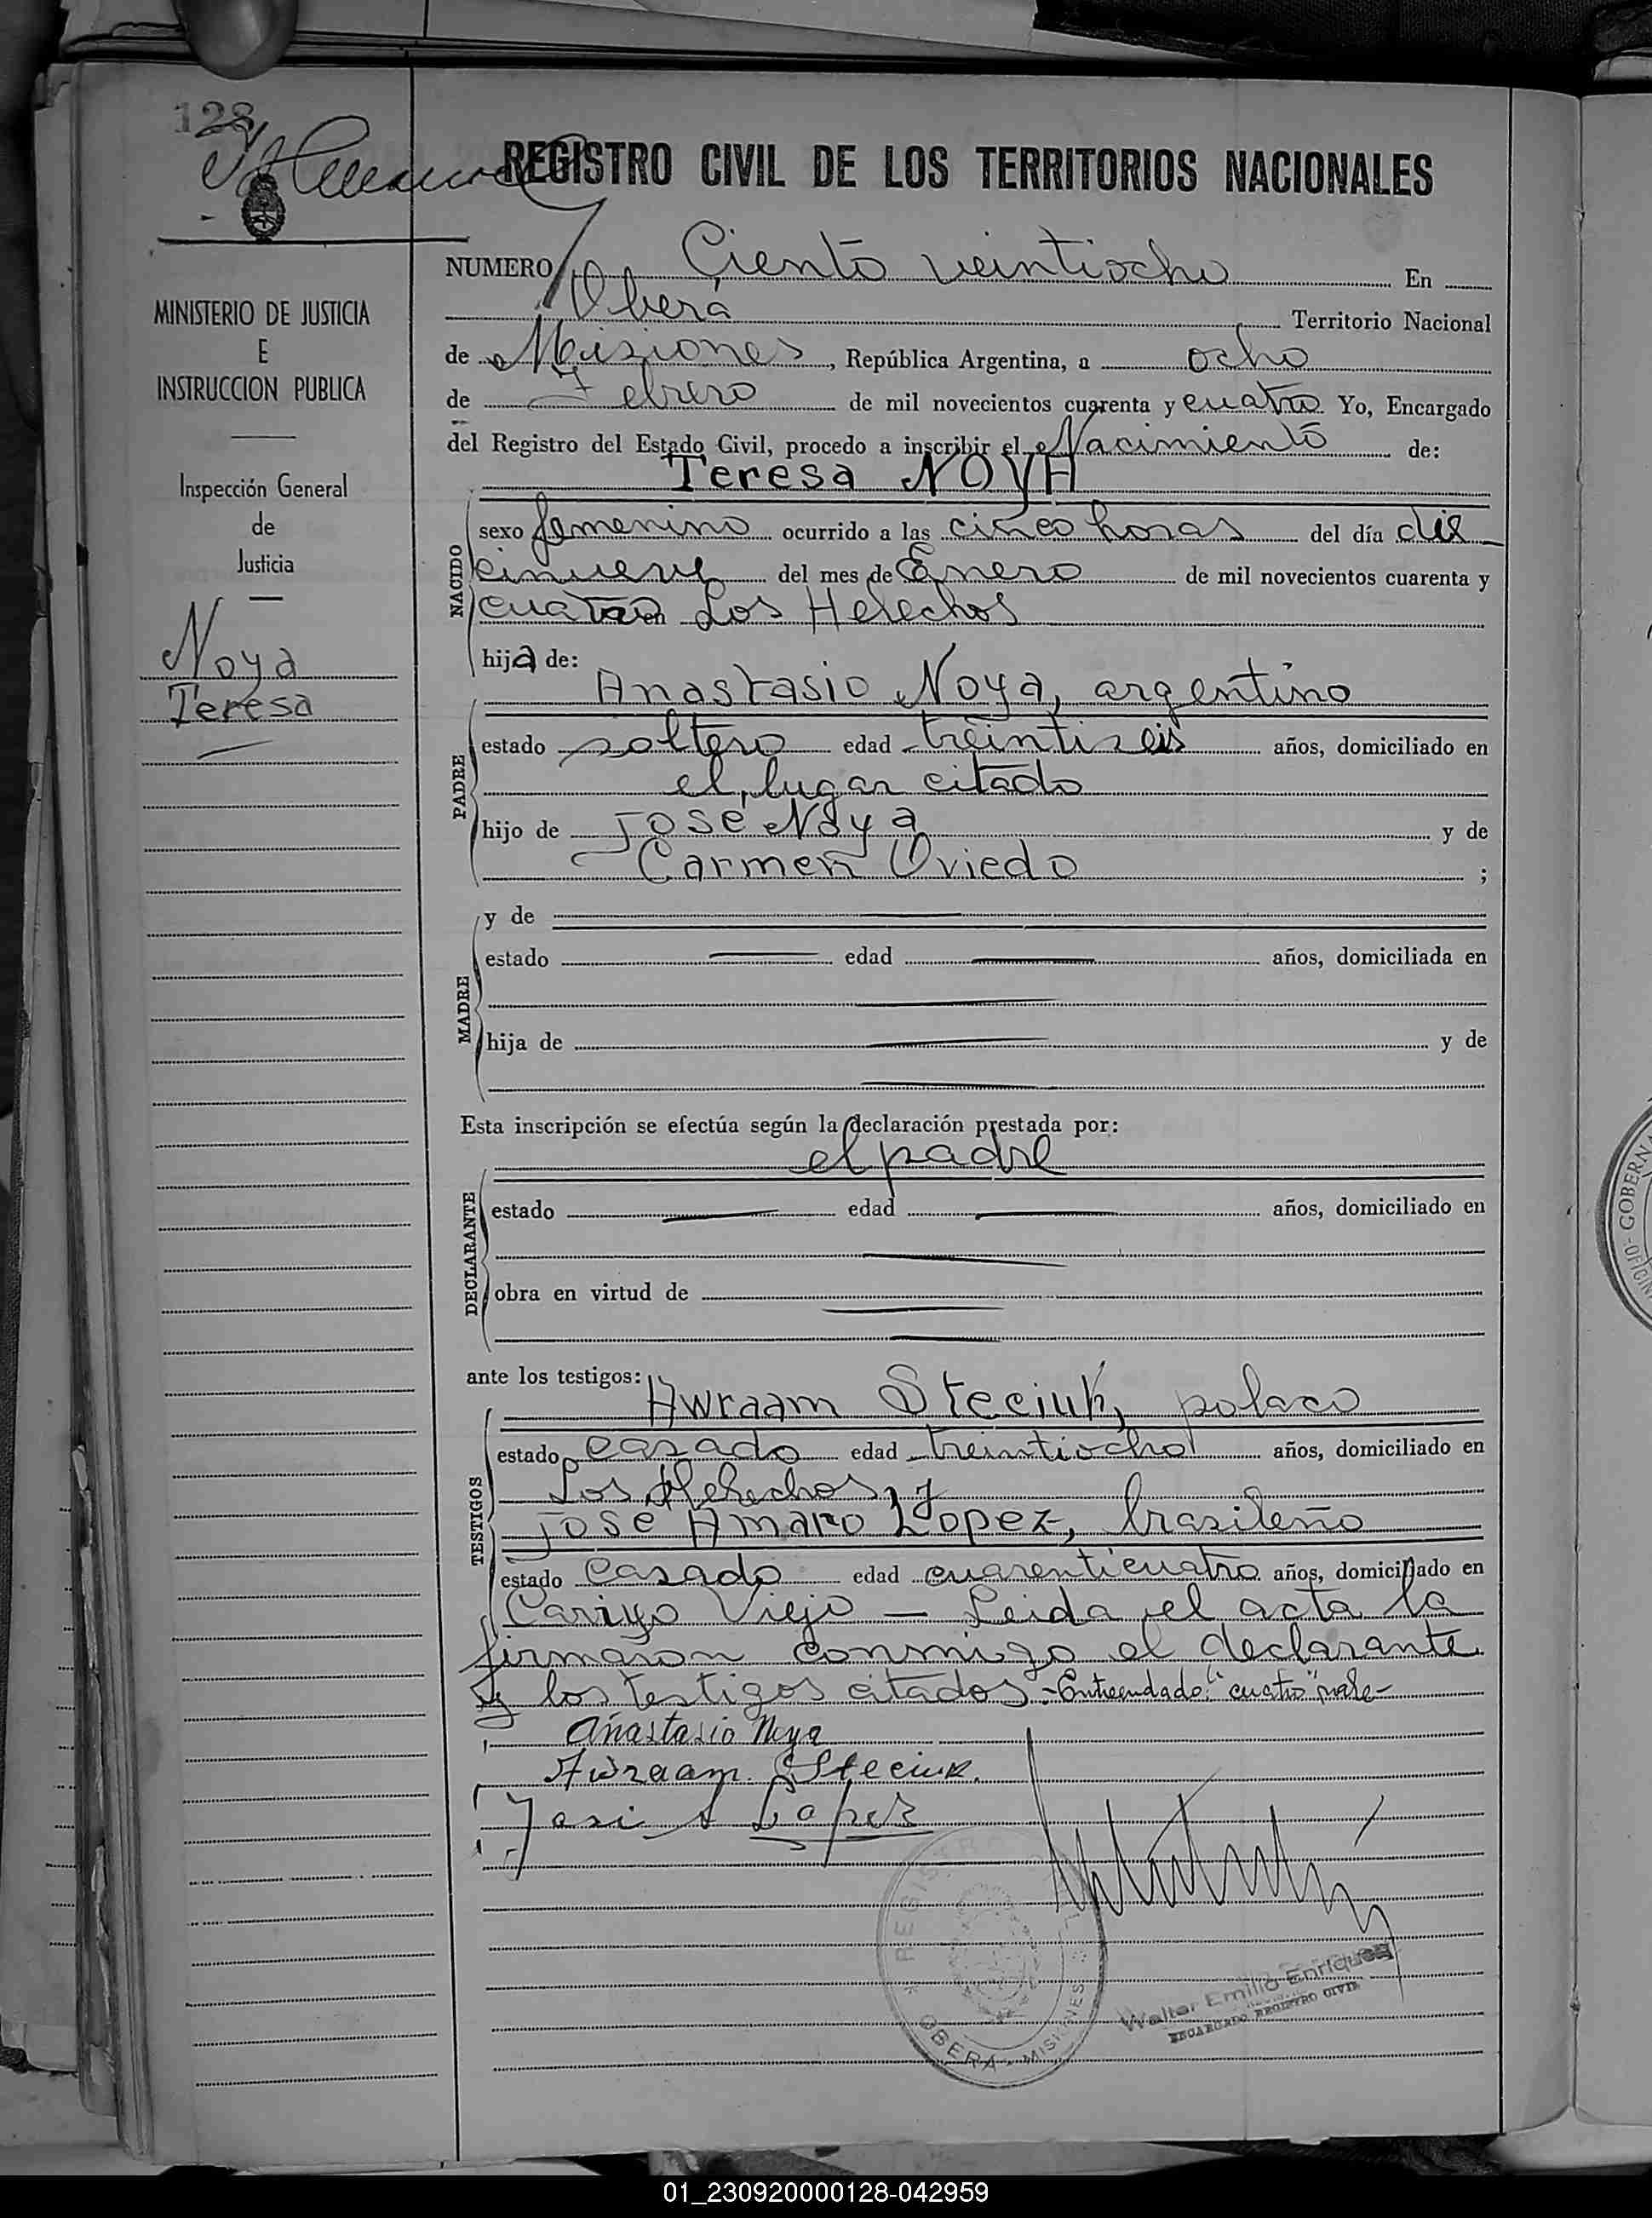 128
REGISTRO CIVIL DE LOS TERRITORIOS NACIONALES
MINISTERIO DE JUSTICIA
E
INSTRUCCION PUBLICA
Inspección General
de
Justicia
Noya
Teresa
NUMERO Ciento veintiocho En
Oberá Territorio Nacional
de Misiones, República Argentina, a ocho
de Febrero de mil novecientos cuarenta y cuatro Yo, Encargado
del Registro del Estado Civil, procedo a inscribir el Nacimiento de:
Teresa NOYA
NACIDO
sexo femenino ocurrido a las cinco horas del día die
cinueve del mes de Enero de mil novecientos cuarenta y
cuatro en Los Helechos
hija de:
Anastasio Noya, argentino
PADRE
estado soltero edad treintiseis años, domiciliado en
el lugar citado
hijo de José Noya y de
Carmen Oviedo ;
MADRE
y de
estado edad años, domiciliada en
hija de y de
Esta inscripción se efectúa según la declaración prestada por:
el padre
DECLARANTE
estado edad años, domiciliado en
obra en virtud de
ante los testigos:
Awraam Steciuk, polaco
TESTIGOS
estado casado edad treintiocho años, domiciliado en
Los Helechos, y
José Amaro Lopez, brasileño
estado casado edad cuarenticuatro años, domiciliado en
Viejo — Leida el acta la
firmaron conmigo el declarante
y los testigos citados.- Entrendado: "cuatro" vale-
Anastasio Noya
Awraam Steciuk.
José A Lopez
REGISTRO
OBERA - MISIONES
Walter Emilio Enriquez
ENCARGADO REGISTRO CIVIL
GOBERN
OFICIN
01_230920000128-042959